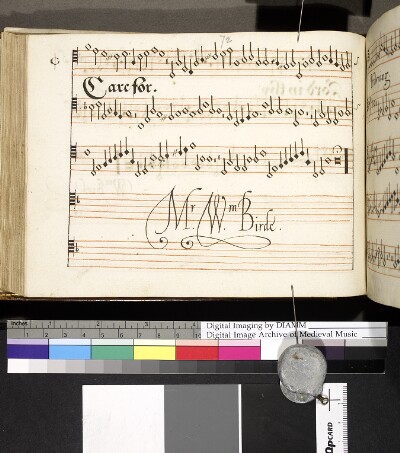 72
Care for.
Mr. Wm Birde.
inches
Digital Imaging by DIAMM
Digital Image Archive of Medieval Music
QPCARD